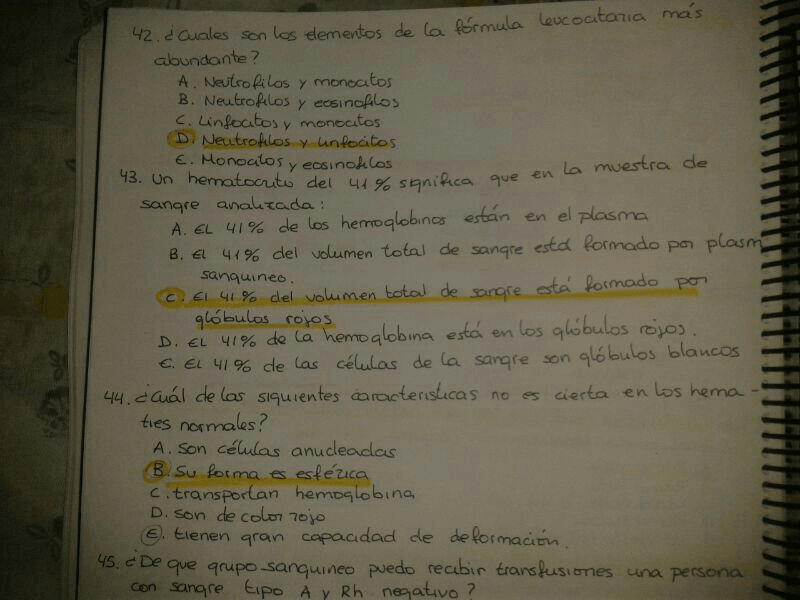 42. ¿Cuales son los elementos de la fórmula leucocitaria más
abundante?
A. Neutrofilos y monocitos
B. Neutrofilos y eosinofilos
C. Linfocitos y monocitos
D. Neutrofilos y linfocitos
E. Monocitos y eosinofilos
43. Un hematocrito del 41% significa que en la muestra de
sangre analizada:
A. El 41% de los hemoglobinos están en el plasma
B. El 41% del volumen total de sangre está formado por plasm
sanguineo.
C. El 41% del volumen total de sangre está formado por
glóbulos rojos
D. El 41% de la hemoglobina está en los glóbulos rojos.
E. El 41% de las células de la sangre son glóbulos blancos
44. ¿Cuál de las siguientes caracteristicas no es cierta en los hema-
ties normales?
A. Son células anucleadas
B. Su forma es esférica
C. transportan hemoglobina
D. son de color rojo
E. tienen gran capacidad de deformación.
45. ¿De que grupo sanguineo puedo recibir transfusiones una persona
con sangre tipo A y Rh negativo?